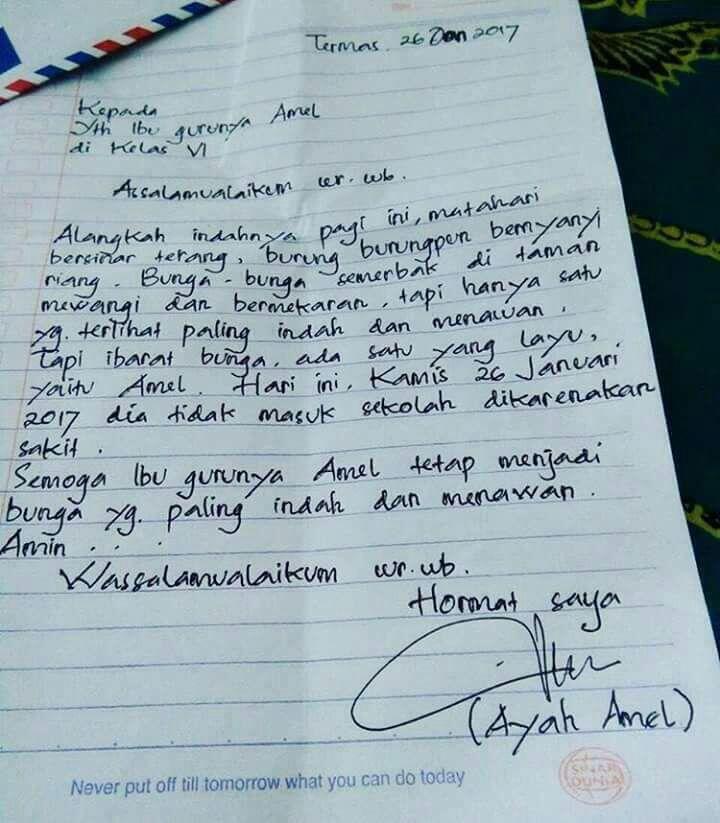 Termas, 26 Jan 2017
Kepada
Yth Ibu gurunya Amel
di Kelas VI
Assalamualaikum wr. wb.
Alangkah indahnya pagi ini, matahari
bersinar terang, burung burungpun bernyanyi
riang. Bunga-bunga semerbak di taman
mewangi dan bermekaran, tapi hanya satu
yg. terlihat paling indah dan menawan,
Tapi ibarat bunga, ada satu yang layu,
yaitu Amel. Hari ini, Kamis 26 Januari
2017 dia tidak masuk sekolah dikarenakan
sakit.
Semoga Ibu gurunya Amel tetap menjadi
bunga yg. paling indah dan menawan.
Amin . . . .
Wassalamualaikum wr. wb.
Hormat saya
(Ayah Amel)
Never put off till tomorrow what you can do today
SINAR
DUNIA